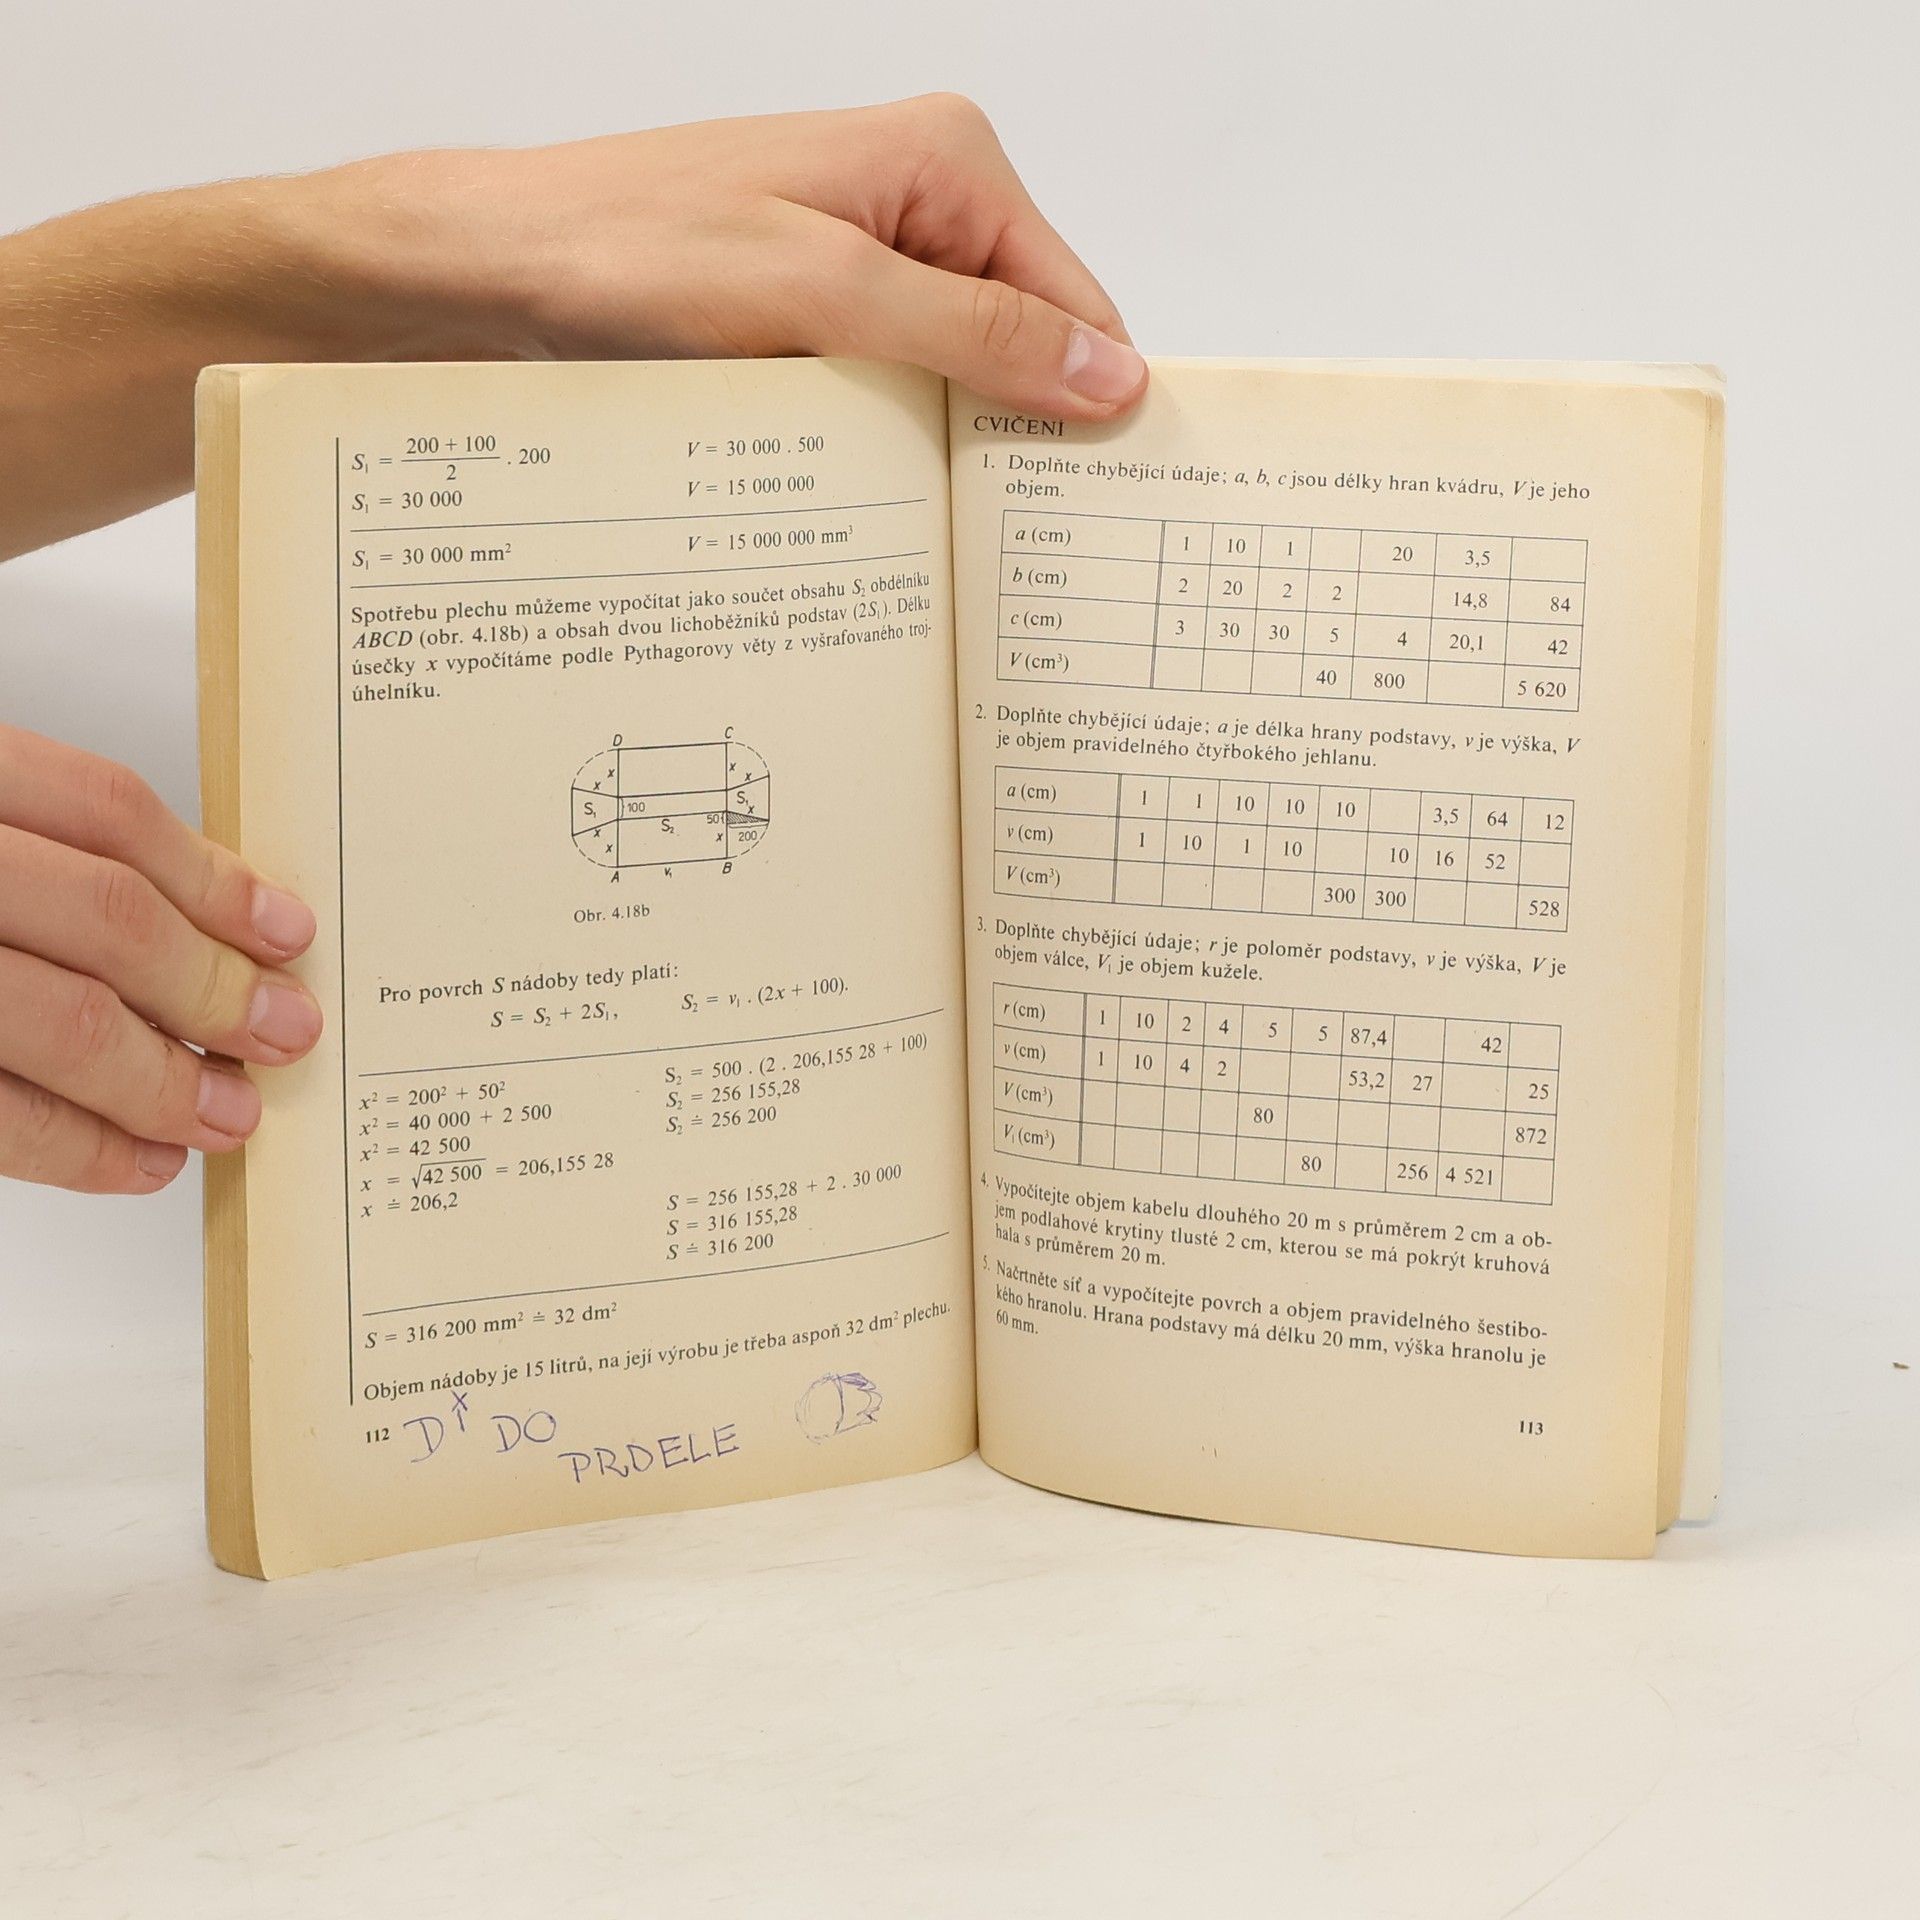 S₁ = (200 + 100)/2 . 200
S₁ = 30 000
V = 30 000 . 500
V = 15 000 000
S₁ = 30 000 mm² V = 15 000 000 mm³
Spotřebu plechu můžeme vypočítat jako součet obsahu S₂ obdélníku
ABCD (obr. 4.18b) a obsah dvou lichoběžníků podstav (2S₁). Délku
úsečky x vypočítáme podle Pythagorovy věty z vyšrafovaného troj-
úhelníku.
D C
x x
x x
S₁ 100 S₁
x
x S₂ 50 x 200
x
A v₁ B
Obr. 4.18b
Pro povrch S nádoby tedy platí:
S = S₂ + 2S₁, S₂ = v₁ . (2x + 100).
x² = 200² + 50²
x² = 40 000 + 2 500
x² = 42 500
x = √42 500 = 206,155 28
x ≐ 206,2
S₂ = 500 . (2 . 206,155 28 + 100)
S₂ = 256 155,28
S₂ ≐ 256 200
S = 256 155,28 + 2 . 30 000
S = 316 155,28
S ≐ 316 200
S = 316 200 mm² ≐ 32 dm²
Objem nádoby je 15 litrů, na její výrobu je třeba aspoň 32 dm² plechu.
112
DI DO
PRDELE
CVIČENÍ
1. Doplňte chybějící údaje; a, b, c jsou délky hran kvádru, V je jeho
objem.
a (cm) 1 10 1 20 3,5
b (cm) 2 20 2 2 14,8 84
c (cm) 3 30 30 5 4 20,1 42
V (cm³) 40 800 5 620
2. Doplňte chybějící údaje; a je délka hrany podstavy, v je výška, V
je objem pravidelného čtyřbokého jehlanu.
a (cm) 1 1 10 10 10 3,5 64 12
v (cm) 1 10 1 10 10 16 52
V (cm³) 300 300 528
3. Doplňte chybějící údaje; r je poloměr podstavy, v je výška, V je
objem válce, V₁ je objem kužele.
r (cm) 1 10 2 4 5 5 87,4 42
v (cm) 1 10 4 2 53,2 27 25
V (cm³) 80 872
V₁ (cm³) 80 256 4 521
4. Vypočítejte objem kabelu dlouhého 20 m s průměrem 2 cm a ob-
jem podlahové krytiny tlusté 2 cm, kterou se má pokrýt kruhová
hala s průměrem 20 m.
5. Načrtněte síť a vypočítejte povrch a objem pravidelného šestibo-
kého hranolu. Hrana podstavy má délku 20 mm, výška hranolu je
60 mm.
113